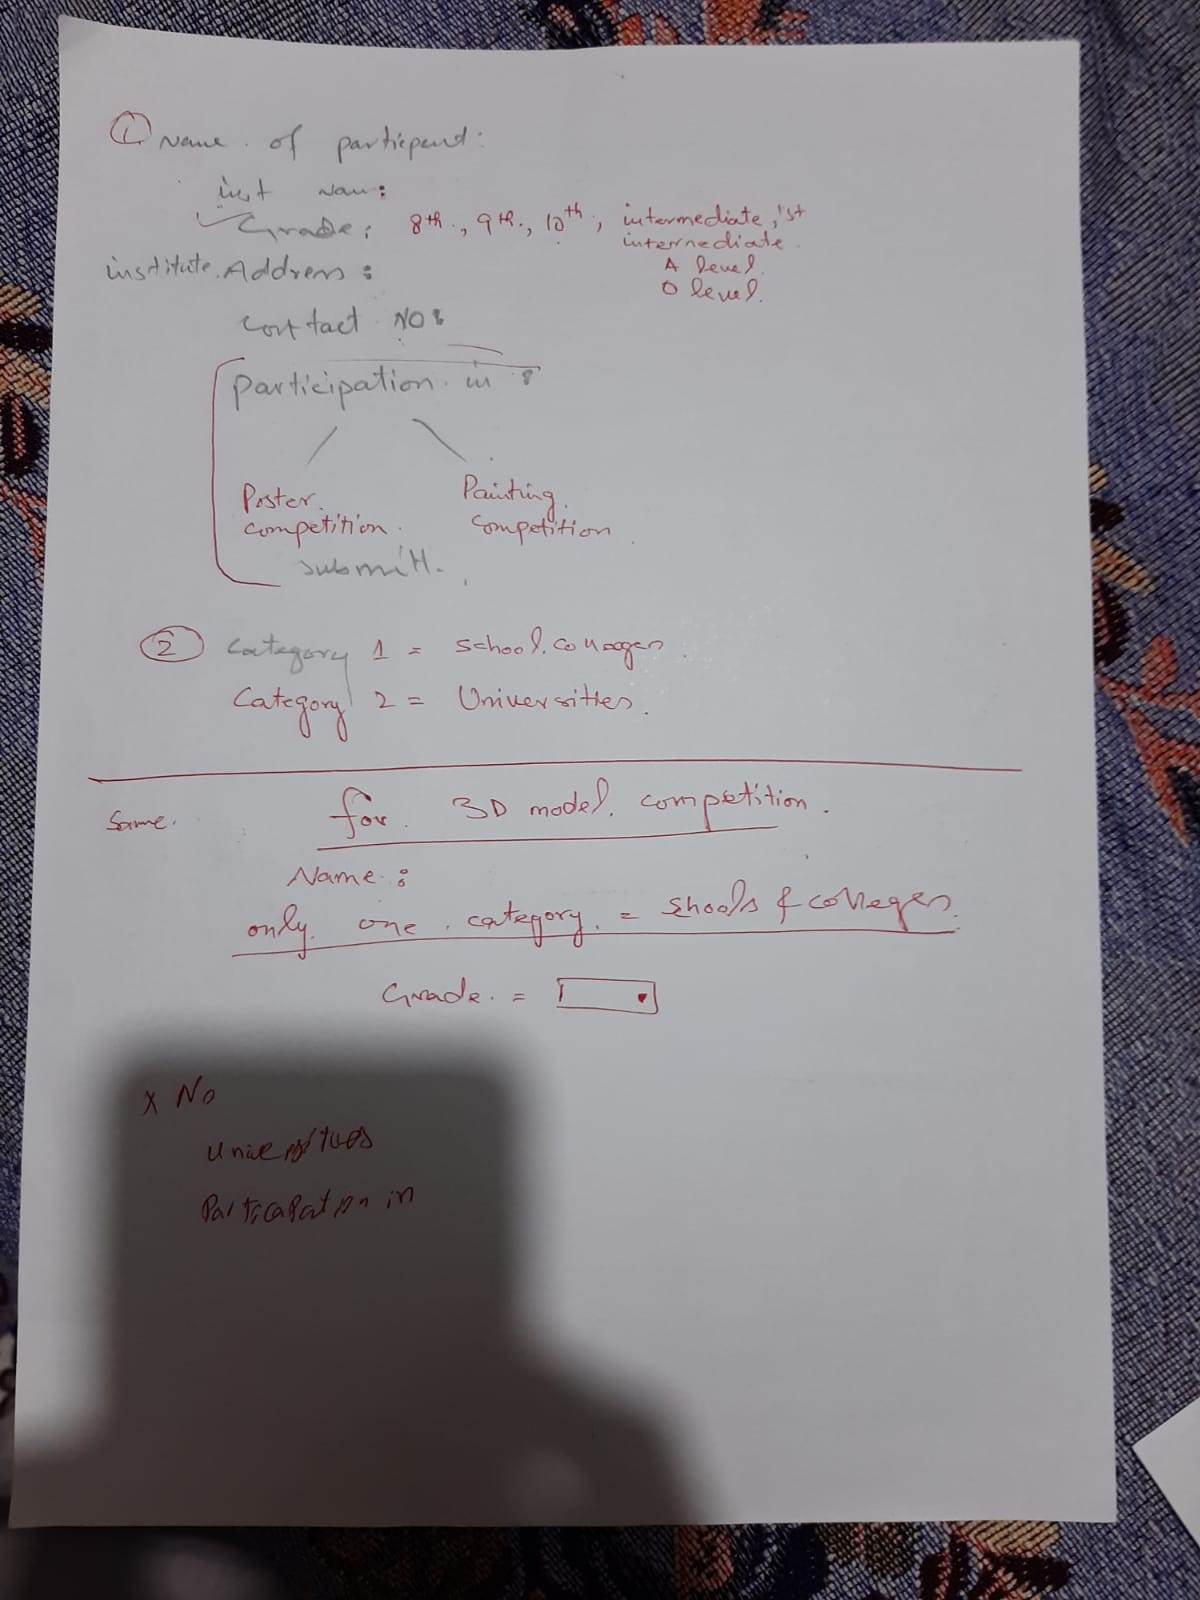 ① Name of participent:
inst Nam:
Grade: 8th, 9th, 10th, intermediate, 1st
intermediate
A level.
O level.
institute Address:
Contact NO:
participation in:
Poster Painting
competition. Competition
submitt.
② Category 1 = school. collages.
Category 2 = Universities.
Same. for 3D model competition.
Name:
only one category = Shools & colleges.
Grade =
x No
Participation in